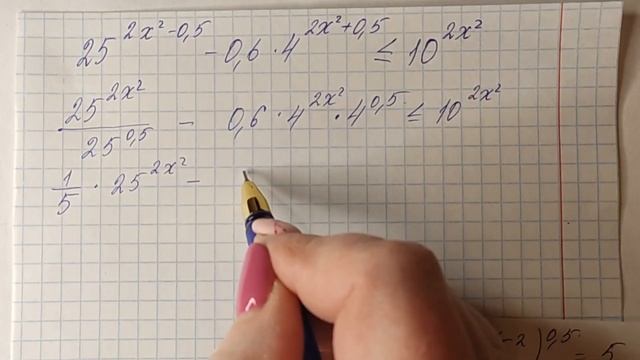 25^{2x²-0,5} - 0,6 · 4^{2x²+0,5} ≤ 10^{2x²}
25^{2x²}/25^{0,5} - 0,6 · 4^{2x²} · 4^{0,5} ≤ 10^{2x²}
1/5 · 25^{2x²} -
-2)^{0,5} = 5